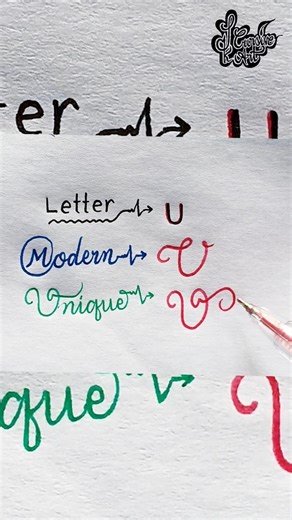 ter U
Letter U
Modern U
Unique U
que